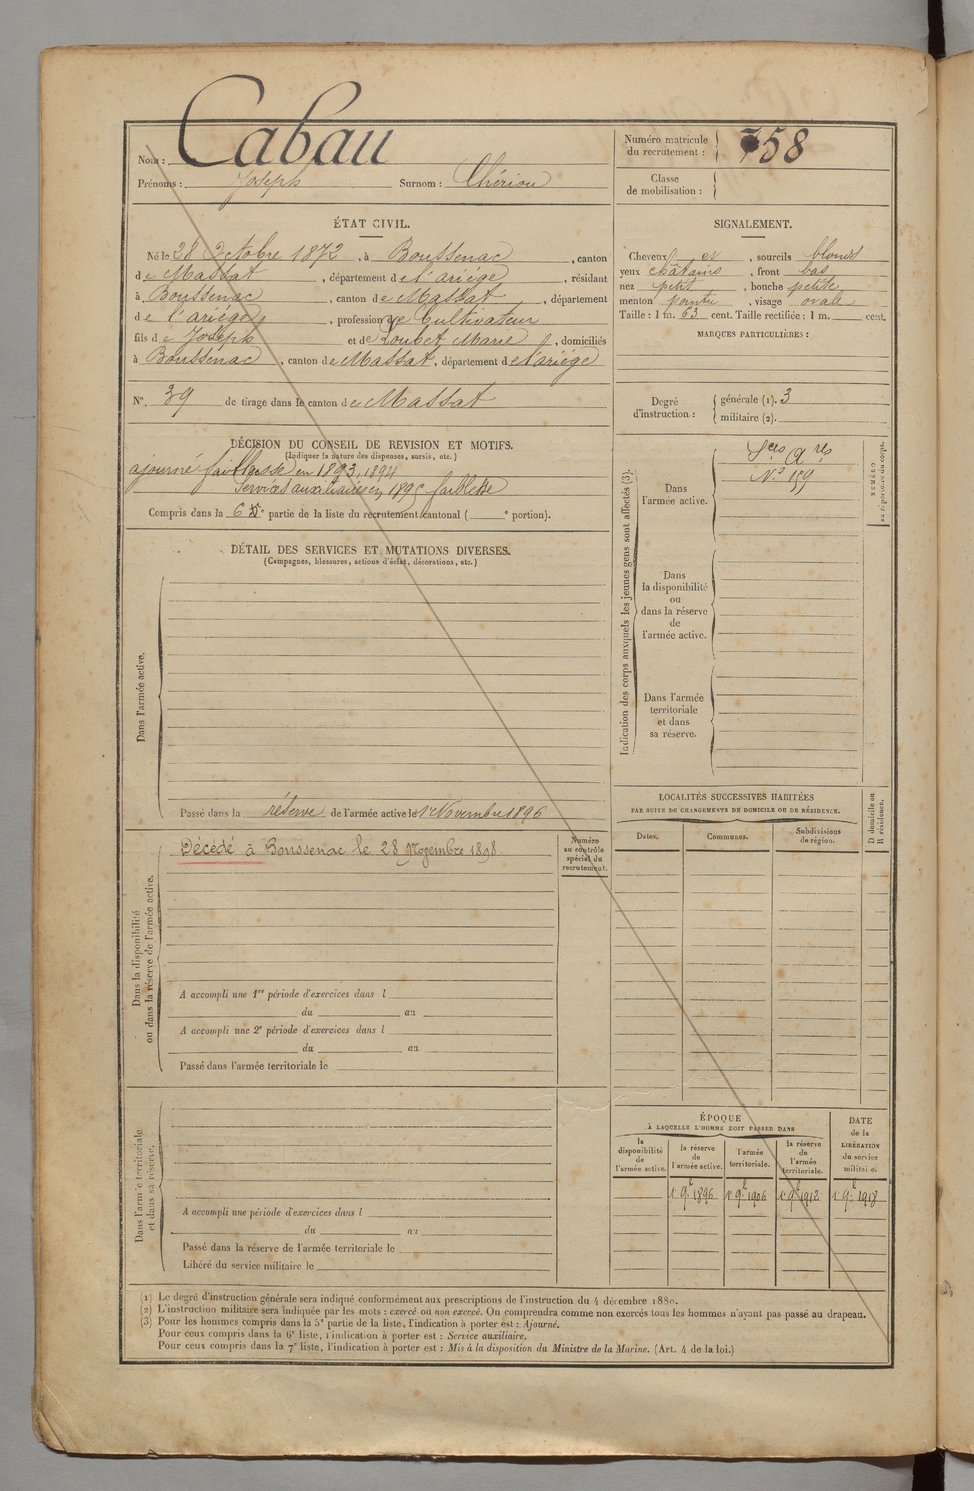 Nom : Cabau
Prénoms : Joseph Surnom : Chériou
Numéro matricule du recrutement : 758
Classe de mobilisation :
ÉTAT CIVIL.
Né le 28 Octobre 1872, à Boussenac, canton
de Massat, département de l'ariége, résidant
à Boussenac, canton de Massat, département
de l'ariége, profession de Cultivateur
fils de Joseph et de Loubet Marie, domiciliés
à Boussenac, canton de Massat, département de l'ariége
N°. 39 de tirage dans le canton de Massat
SIGNALEMENT.
Cheveux et, sourcils blonds
yeux châtains, front bas
nez petit, bouche petite
menton pointu, visage ovale
Taille : 1 m. 63 cent. Taille rectifiée : 1 m. cent.
MARQUES PARTICULIÈRES :
Degré d'instruction : générale (1). 3
militaire (2).
DÉCISION DU CONSEIL DE REVISION ET MOTIFS.
(Indiquer la nature des dispenses, sursis, etc.)
ajourné faiblesse en 1893, 1894
Services auxiliaires en 1895 faiblesse
Compris dans la 6e partie de la liste du recrutement cantonal ( e portion).
DÉTAIL DES SERVICES ET MUTATIONS DIVERSES.
(Campagnes, blessures, actions d'éclat, décorations, etc.)
Dans l'armée active.
Passé dans la réserve de l'armée active le 1er Novembre 1896
Indication des corps auxquels les jeunes gens sont affectés (3).
Dans l'armée active.
Sces Ares
N° 159
NUMÉRO au répertoire du corps.
Dans la disponibilité ou dans la réserve de l'armée active.
Dans l'armée territoriale et dans sa réserve.
LOCALITÉS SUCCESSIVES HABITÉES
PAR SUITE DE CHANGEMENTS DE DOMICILE OU DE RÉSIDENCE.
Dates. Communes. Subdivisions de région.
D domicile ou R résidence.
Dans la disponibilité ou dans la réserve de l'armée active.
Décédé à Boussenac le 28 Novembre 1898
Numéro au contrôle spécial du recrutement.
A accompli une 1re période d'exercices dans l
du au
A accompli une 2e période d'exercices dans l
du au
Passé dans l'armée territoriale le
Dans l'armée territoriale et dans sa réserve.
A accompli une période d'exercices dans l
du au
Passé dans la réserve de l'armée territoriale le
Libéré du service militaire le
ÉPOQUE
À LAQUELLE L'HOMME DOIT PASSER DANS
la disponibilité de l'armée active.
la réserve de l'armée active.
l'armée territoriale.
la réserve de l'armée territoriale.
DATE de la LIBÉRATION du service militaire.
1r 9bre 1896 1r 9bre 1906 1r 9bre 1912 1r 9bre 1918
(1) Le degré d'instruction générale sera indiqué conformément aux prescriptions de l'instruction du 4 décembre 1889.
(2) L'instruction militaire sera indiquée par les mots : exercé ou non exercé. On comprendra comme non exercés tous les hommes n'ayant pas passé au drapeau.
(3) Pour les hommes compris dans la 5e partie de la liste, l'indication à porter est : Ajourné.
Pour ceux compris dans la 6e liste, l'indication à porter est : Service auxiliaire.
Pour ceux compris dans la 7e liste, l'indication à porter est : Mis à la disposition du Ministre de la Marine. (Art. 4 de la loi.)